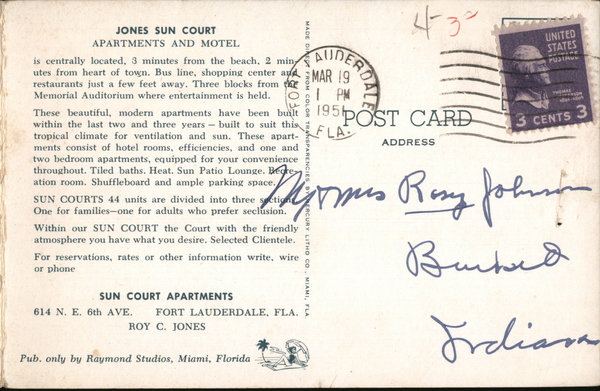 JONES SUN COURT
APARTMENTS AND MOTEL
is centrally located, 3 minutes from the beach, 2 min-
utes from heart of town. Bus line, shopping center and
restaurants just a few feet away. Three blocks from the
Memorial Auditorium where entertainment is held.
These beautiful, modern apartments have been built
within the last two and three years — built to suit this
tropical climate for ventilation and sun. These apart-
ments consist of hotel rooms, efficiencies, and one and
two bedroom apartments, equipped for your convenience
throughout. Tiled baths. Heat. Sun Patio Lounge. Recre-
ation room. Shuffleboard and ample parking space.
SUN COURTS 44 units are divided into three sections.
One for families—one for adults who prefer seclusion.
Within our SUN COURT the Court with the friendly
atmosphere you have what you desire. Selected Clientele.
For reservations, rates or other information write, wire
or phone
SUN COURT APARTMENTS
614 N. E. 6th AVE. FORT LAUDERDALE, FLA.
ROY C. JONES
Pub. only by Raymond Studios, Miami, Florida
MADE DIRECT FROM COLOR TRANSPARENCIES BY MERCURY LITHO CO., MIAMI, FLA.
4 - 3⁰
FORT LAUDERDALE
MAR 19
1 PM
1951
FLA.
UNITED
STATES
POSTAGE
THOMAS
3 CENTS 3
POST CARD
ADDRESS
Mr & Mrs Roy Johnson
Burket
Indiana